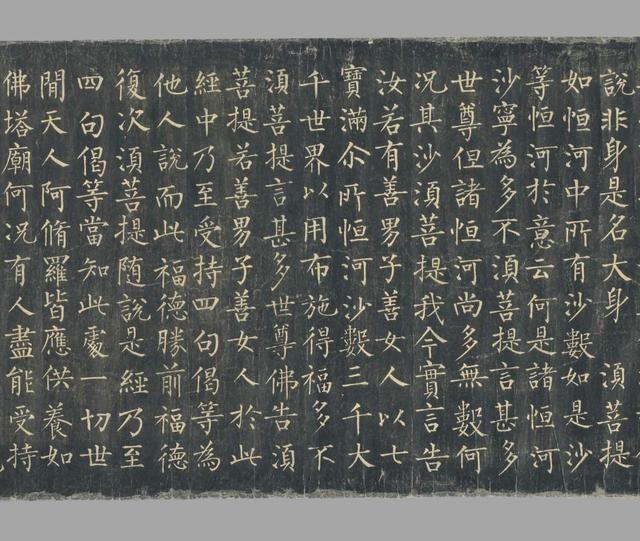 說非身是名大身 須菩提
如恒河中所有沙數如是沙
等恒河於意云何是諸恒河
沙寧為多不須菩提言甚多
世尊但諸恒河尚多無數何
況其沙須菩提我今實言告
汝若有善男子善女人以七
寶滿尒所恒河沙數三千大
千世界以用布施得福多不
須菩提言甚多世尊佛告須
菩提若善男子善女人於此
經中乃至受持四句偈等為
他人說而此福德勝前福德
復次須菩提隨說是經乃至
四句偈等當知此處一切世
閒天人阿脩羅皆應供養如
佛塔廟何況有人盡能受持